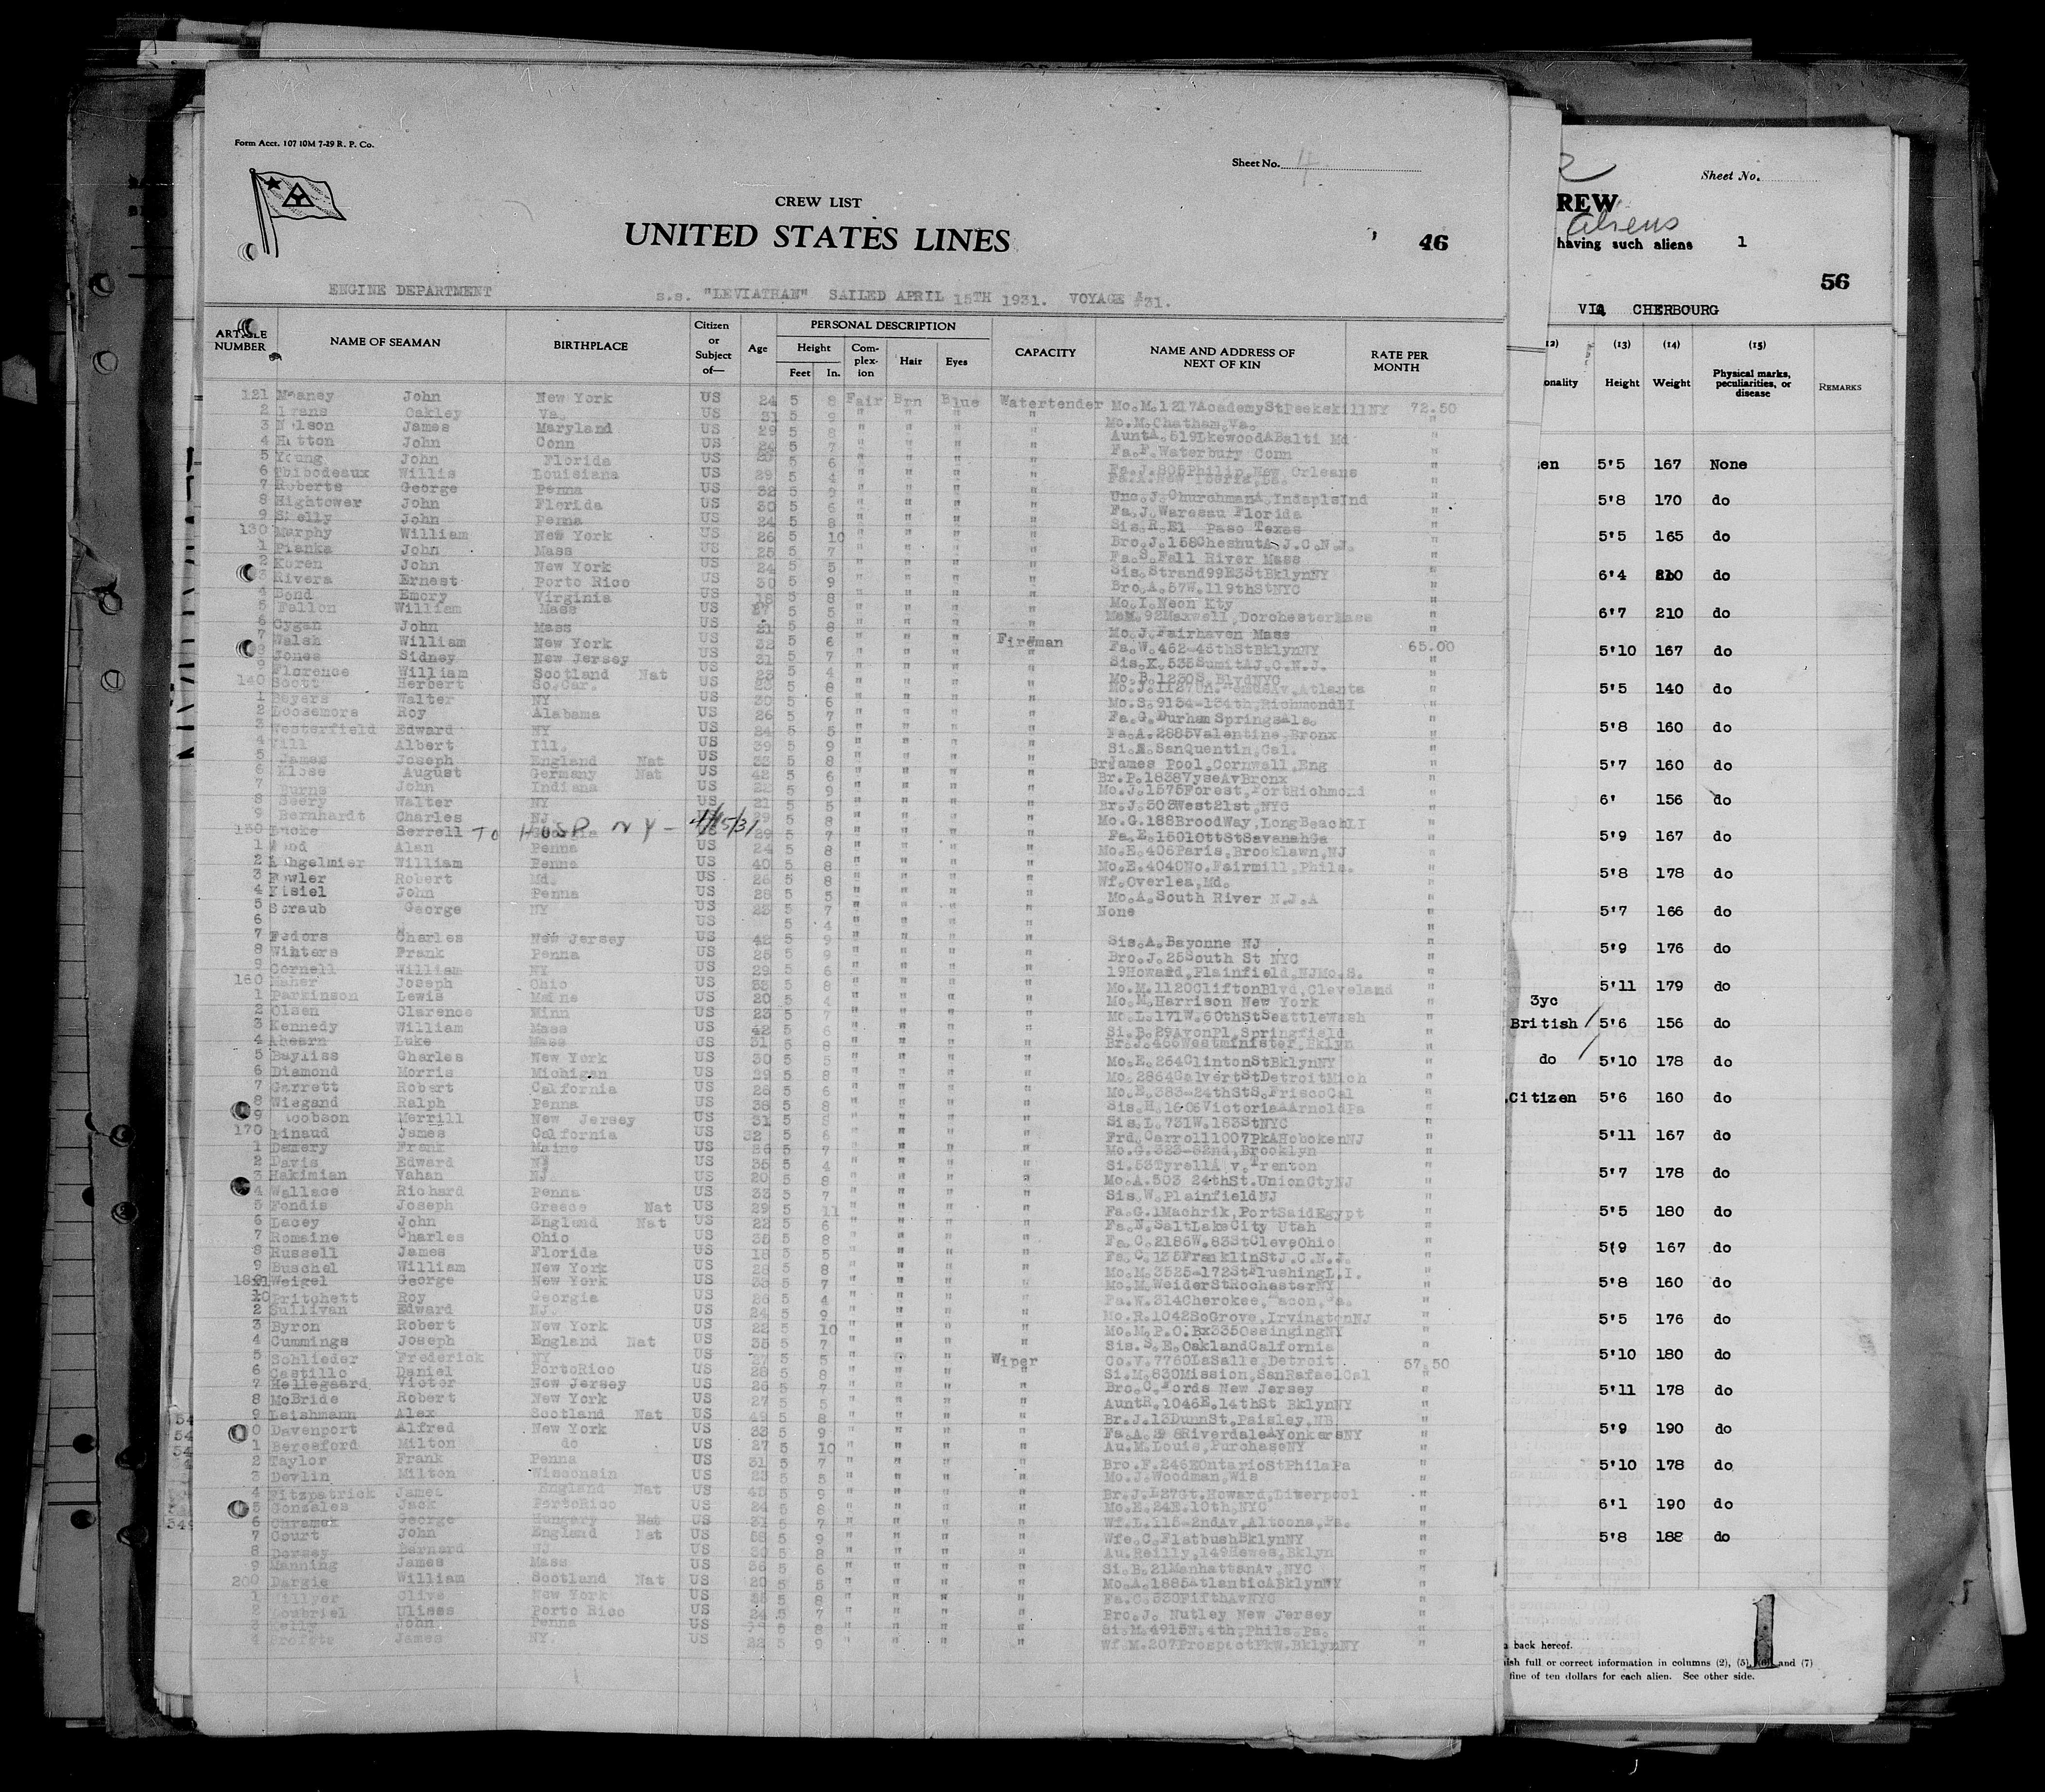 Form Acct. 107 10M 7-29 R. P. Co.
Sheet No. 4
CREW LIST
UNITED STATES LINES
46
ENGINE DEPARTMENT s.s. "LEVIATHAN" SAILED APRIL 15TH 1931. VOYAGE #31.
ARTICLE NUMBER NAME OF SEAMAN BIRTHPLACE Citizen or Subject of— Age PERSONAL DESCRIPTION Height Feet In. Complexion Hair Eyes CAPACITY NAME AND ADDRESS OF NEXT OF KIN RATE PER MONTH
121 John New York US 24 5 8 Fair Brn Blue Watertender Mo.M.1217AcademyStPeekskillNY 72.50
2 Oakley Va. US 31 5 9 " " " " Mo.M.Chatham,Va. "
3 Nelson James Maryland US 29 5 8 " " " " AuntA.519LkewoodABalti Md "
4 Hutton John Conn US 24 5 7 " " " " Fa.F.Waterbury Conn "
5 Young John Florida US 5 6 " " " " Fa.J.805Philip,New Orleans "
6 Thibodeaux Willis Louisiana US 29 5 4 " " " "
7 Roberts George Penna US 32 5 9 " " " " Unc.J.ChurchmanA.IndaplsInd "
8 Hightower John Florida US 30 5 6 " " " " Fa.J.Waresau Florida "
9 Skelly John Penna US 24 5 8 " " " " Sis.R.El Paso Texas "
130 Murphy William New York US 26 5 10 " " " " Bro.J.158ChesnutA J.C.N.J. "
1 Pianka John Mass US 25 5 7 " " " " Fa.S.Fall River Mass "
2 Koren John New York US 24 5 5 " " " " Sis.Strand99E3StBklynNY "
3 Rivera Ernest Porto Rico US 30 5 9 " " " " Bro.A.57W.119thStNYC "
4 Bond Emory Virginia US 18 5 8 " " " " Mo.I.Neon Kty "
5 Fallon William Mass US 27 5 5 " " " " MoM.92Maxwell,DorchesterMass "
6 Cygan John Mass US 21 5 8 " " " " Mo.J.Fairhaven Mass "
7 Walsh William New York US 32 5 6 " " " Fireman Fa.W.462-45thStBklynNY 65.00
8 Jones Sidney New Jersey US 31 5 7 " " " " Sis.K.535SumitAJ.C.N.J. "
9 Florence William Scotland Nat US 23 5 4 " " " " Mo.B.1230S.BlvdNYC "
140 Scott Herbert So.Car. US 5 8 " " " "
1 Beyers Walter NY US 30 5 6 " " " " Mo.S.9134-134th,RichmondHI "
2 Loosemore Roy Alabama US 26 5 7 " " " " Fa.G.DurhamSpringsAla. "
3 Westerfield Edward NY US 24 5 5 " " " " Fa.A.2885Valentine,Bronx "
4 Albert Ill. US 39 5 9 " " " " Si.E.SanQuentin,Cal. "
5 James Joseph England Nat US 33 5 8 " " " " BrJames Pool,Cornwall,Eng "
6 Klose August Germany Nat US 42 5 6 " " " " Br.P.1838VyseAvBronx "
7 Burns John Indiana US 22 5 9 " " " " Mo.J.1575Forest,PortRichmond "
8 Seery Walter NY US 21 5 5 " " " " Br.J.503West21st,NYC "
9 Bernhardt Charles NJ US 29 5 8 " " " " Mo.G.188BroodWay,LongBeachLI "
150 Serrell TO HOSP NY - 4/15/31 29 5 7 " " " " Fa.E.1501OttStSavanahGa "
1 Wood Alan Penna US 24 5 8 " " " " Mo.E.406Paris,Brooklawn,NJ "
2 Angelmier William Penna US 40 5 8 " " " " Mo.E.4040No.Fairmill,Phila. "
3 Fowler Robert Md. US 26 5 8 " " " " Wf.Overlea,Md. "
4 Kisiel John Penna US 28 5 5 " " " " Mo.A.South River N.J.A "
5 Straub George NY US 23 5 7 " " " " None "
6 US 5 4 " " " " "
7 Fedors Charles New Jersey US 42 5 9 " " " " Sis.A.Bayonne NJ "
8 Winters Frank Penna US 25 5 9 " " " " Bro.J.25South St NYC "
9 Cornell William NY US 29 5 6 " " " " 19Howard,Plainfield,NJMo.S. "
160 Maher Joseph Ohio US 33 5 8 " " " " Mo.M.1120CliftonBlvd,Cleveland "
1 Parkinson Lewis Maine US 20 5 4 " " " " Mo.M.Harrison New York "
2 Olsen Clarence Minn US 23 5 7 " " " " Mo.L.171W.60thStSeattleWash "
3 Kennedy William Mass US 42 5 6 " " " " Si.B.29AvonPl,Springfield "
4 Ahearn Luke Mass US 31 5 8 " " " " Br.J.466Westminister,Bklyn "
5 Bayliss Charles New York US 30 5 5 " " " " Mo.E.264ClintonStBklynNY "
6 Diamond Morris Michigan US 29 5 8 " " " " Mo.2864CalvertStDetroitMich "
7 Garrett Robert California US 26 5 6 " " " " Mo.E.383-24thStS.FriscoCal "
8 Wiegand Ralph Penna US 38 5 8 " " " " Sis.H.1606VictoriaAArnoldPa "
9 Jacobson Merrill New Jersey US 31 5 8 " " " " Sis.L.731W.183StNYC "
170 Pinaud James California US 32 5 6 " " " " Frd.Carroll1007PkAHobokenNJ "
1 Damery Frank Maine US 26 5 7 " " " " Mo.G.323-52nd,Brooklyn "
2 Davis Edward NJ US 35 5 4 " " " " Si.53TyrellA v.Trenton "
3 Hakimian Vahan NJ. US 20 5 8 " " " " Mo.A.503 24thSt.UnionCtyNJ "
4 Wallace Richard Penna US 33 5 7 " " " " Sis.W.PlainfieldNJ "
5 Fondis Joseph Greece Nat US 29 5 11 " " " " Fa.G.1Machrik,PortSaidEgypt "
6 Lacey John England Nat US 22 5 6 " " " " Fa.N.SaltLakeCity Utah "
7 Romaine Charles Ohio US 35 5 8 " " " " Fa.C.2186W.83StCleveOhio "
8 Russell James Florida US 18 5 5 " " " " Fa.C.135FranklinStJ.C.N.J. "
9 Buschel William New York US 28 5 8 " " " " Mo.M.3525-172StFlushingL.I. "
Weigel George New York US 33 5 7 " " " " Mo.M.WeiderStRochesterNY "
Pritchett Roy Georgia US 26 5 4 " " " " Pa.W.314Cherokee,Macon,Ga. "
2 Sullivan Edward NJ. US 24 5 9 " " " " Mo.R.1042SoGrove,IrvingtonNJ "
3 Byron Robert New York US 22 5 10 " " " " Mo.M.P.O.Bx335OssingingNY "
4 Cummings Joseph England Nat US 35 5 7 " " " " Sis.S.E.OaklandCalifornia "
5 Schlieder Frederick NY US 27 5 5 " " " Wiper Co.V.7760LaSalle,Detroit 57.50
6 Castillo Daniel PortoRico US 28 5 8 " " " " Si.M.830Mission,SanRafaelCal "
7 Hellegaard Victor New Jersey US 26 5 7 " " " " Bro.C.Fords New Jersey "
8 McBride Robert New York US 27 5 5 " " " " AuntR.1046E.14thSt BklynNY "
9 Leishmann Alex Scotland Nat US 49 5 8 " " " " Br.J.13DunnSt,Paisley,NB "
0 Davenport Alfred New York US 33 5 9 " " " " Fa.A.RiverdaleAYonkersNY "
1 Beresford Milton do US 27 5 10 " " " " Au.M.Louis,PurchaseNY "
2 Taylor Frank Penna US 31 5 7 " " " " Bro.F.246EOntarioStPhilaPa "
3 Devlin Milton Wisconsin US 23 5 5 " " " " Mo.J.Woodman,Wis "
4 Fitzpatrick James England Nat US 43 5 9 " " " " Br.J.127Gt.Howard,Liverpool "
5 Gonzales Jack PortoRico US 24 5 8 " " " " Mo.E.24E.10th,NYC "
6 Chramek George Hungary Nat US 31 5 7 " " " " Wf.L.115-2ndAv,Altoona,Pa. "
7 Court John England Nat US 58 5 9 " " " " Wfe.C.FlatbushBklynNY "
8 Dorsey Bernard NJ US 30 5 8 " " " " Au.Reilly,149Hewes,Bklyn "
9 Manning James Mass US 36 5 6 " " " " Si.B.21ManhattanAv,NYC "
200 Dargie William Scotland Nat US 20 5 5 " " " " Mo.A.1885AtlanticABklynNY "
1 Hillyer Clive New York US 5 8 " " " " Fa.C.530FifthAvNYC "
2 Loubriel Ulises Porto Rico US 24 5 7 " " " " Bro.J. Nutley New Jersey "
3 Kelly John Penna US 5 8 " " " " Si.M.4915N.4th,Phila,Pa. "
4 James NY. US 22 5 9 " " " " Wf.M.207ProspectPkW.BklynNY "
Sheet No.
REW
aliens
having such aliens 1
56
VIA CHERBOURG
(13) (14) (15)
onality Height Weight Physical marks, peculiarities, or disease REMARKS
zen 5'5 167 None
5'8 170 do
5'5 165 do
6'4 210 do
6'7 210 do
5'10 167 do
5'5 140 do
5'8 160 do
5'7 160 do
6' 156 do
5'9 167 do
5'8 178 do
5'7 166 do
5'9 176 do
5'11 179 do
3yc
British 5'6 156 do
do 5'10 178 do
.Citizen 5'6 160 do
5'11 167 do
5'7 178 do
5'5 180 do
5'9 167 do
5'8 160 do
5'5 176 do
5'10 180 do
5'11 178 do
5'9 190 do
5'10 178 do
6'1 190 do
5'8 188 do
back hereof.
ish full or correct information in columns (2), (5), (6), and (7)
fine of ten dollars for each alien. See other side.